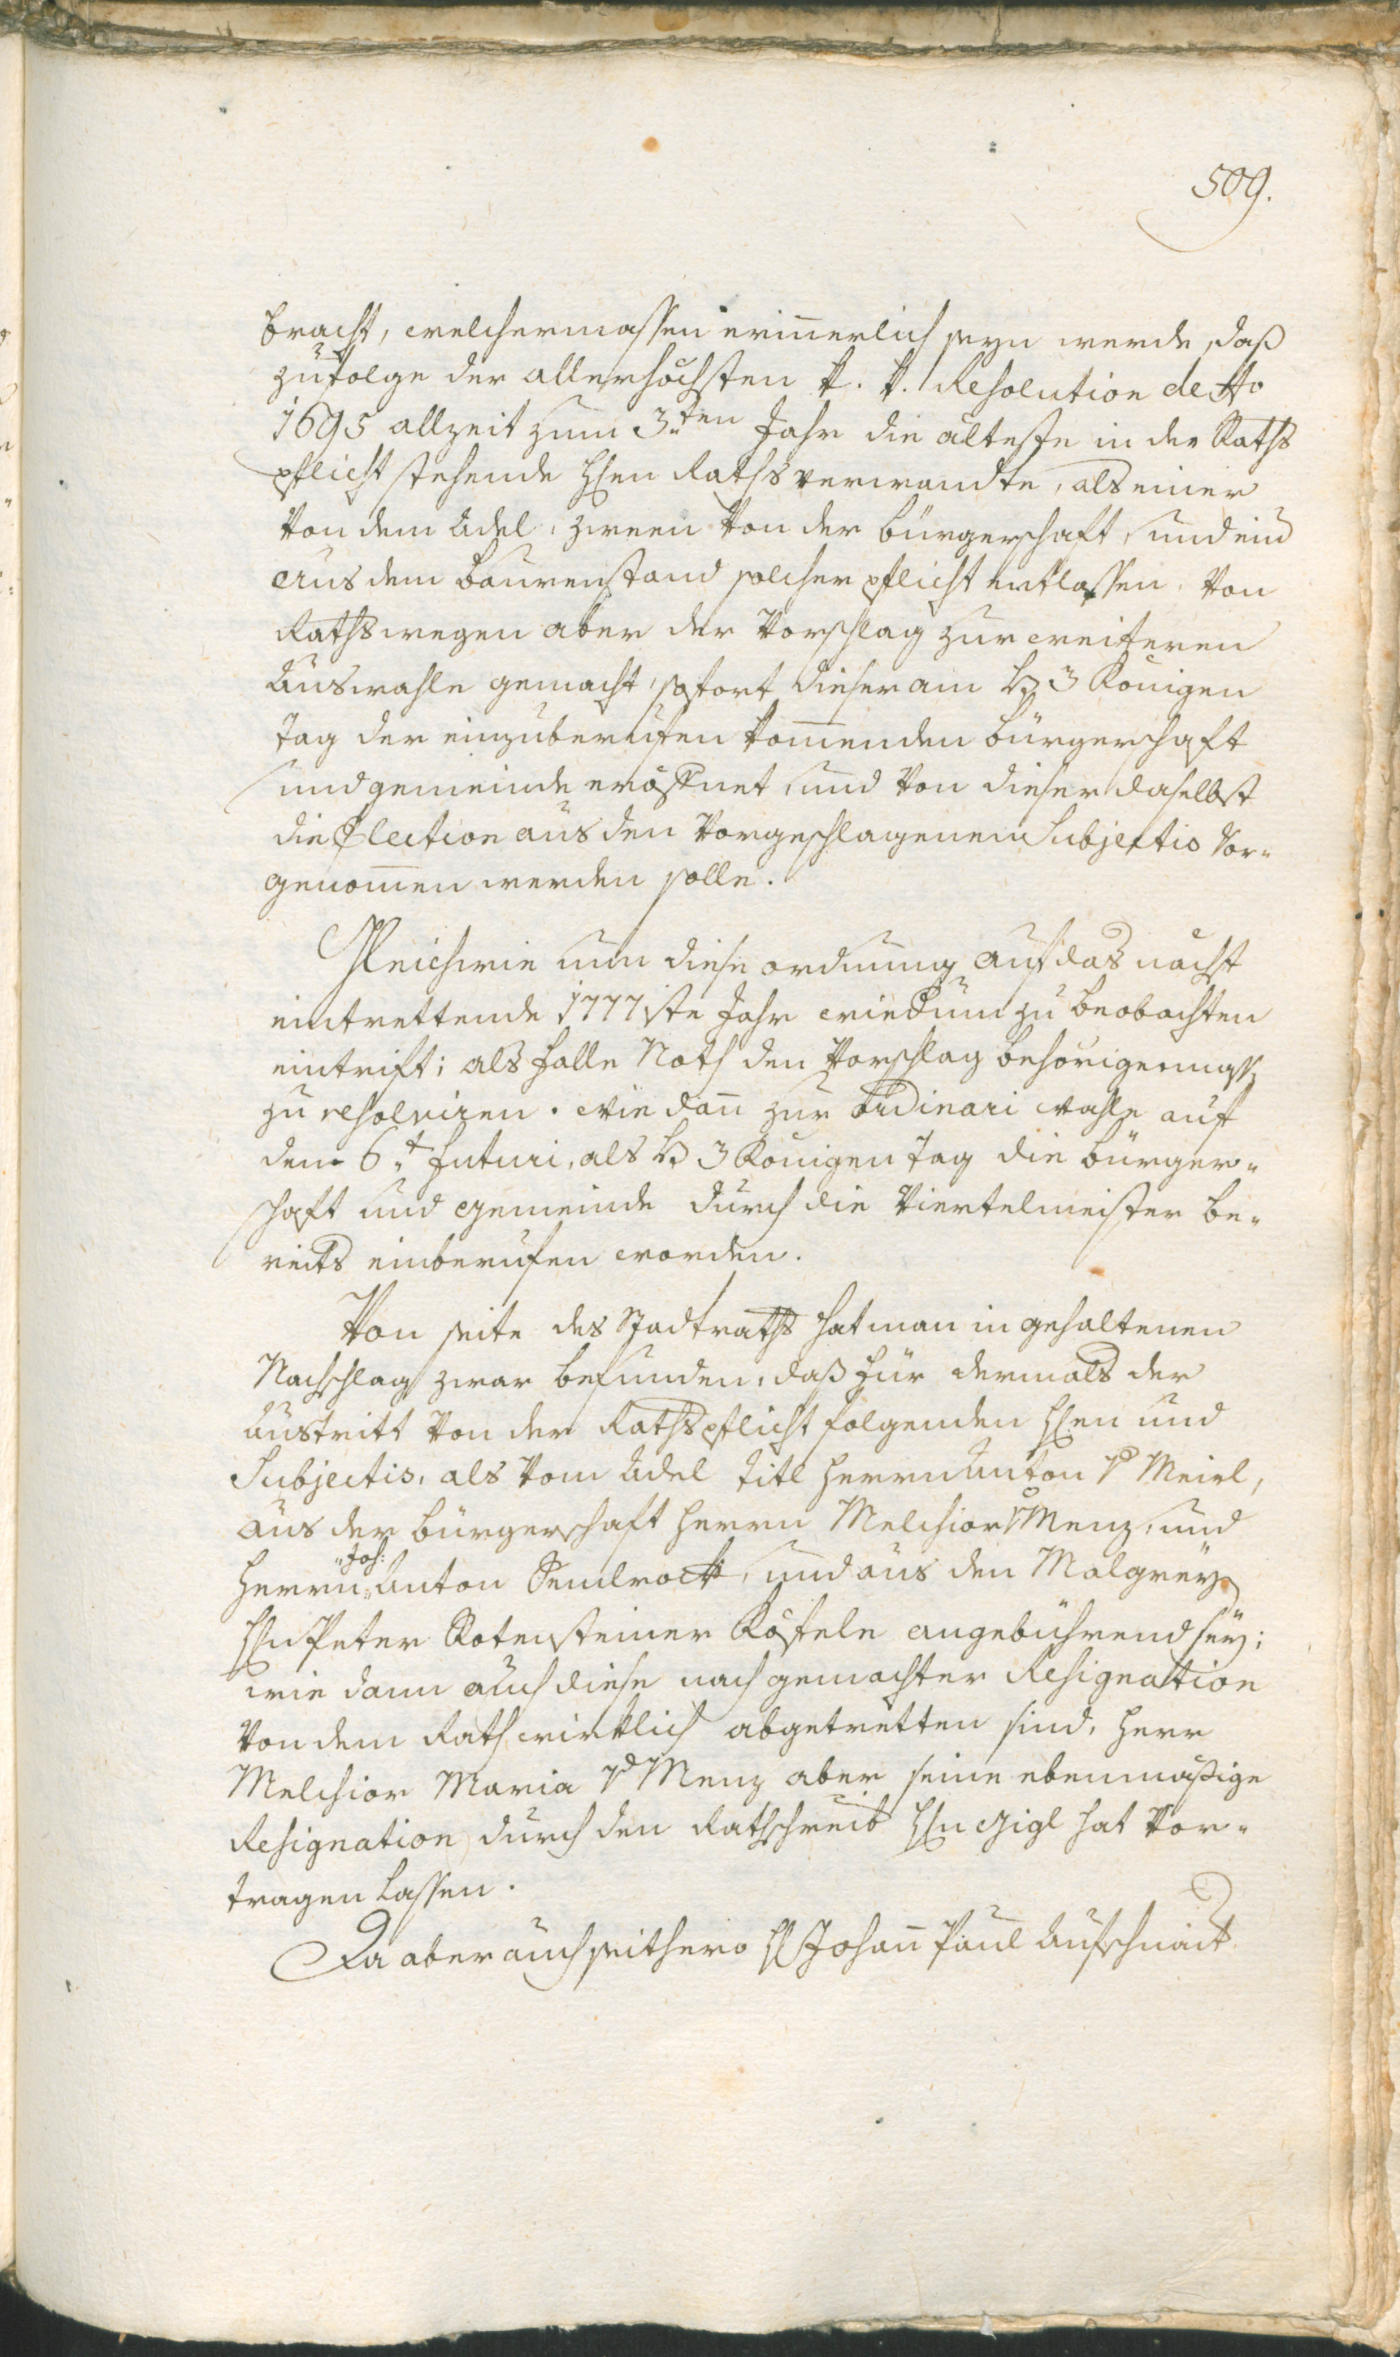 509.
bracht, welchermassen erinnerlich seyn werde, daß
zufolge der allerhöchsten k. k. Resolution de Ao
1695 allzeit zum 3ten Jahr die älteste in der Raths
pflicht stehende Hhen Rathsverwandte, als einer
von dem Adel, zween von der bürgerschaft, und ein
aus dem Baurenstand solcher pflicht entlassen, von
Rathswegen aber der Vorschlag zur weiteren
Auswahle gemacht, sofort dieser am H 3 Königen
tag der einzuberufen kommenden bürgerschaft
und gemeinde eröffnet, und von dieser daselbst
die Election aus den Vorgeschlagenen Subjectis vor-
genommen werden solle.
Gleichwie nun diese ordnung auf das nächst
eintrettende 1777iste Jahr wiedum zu beobachten
eintrift; als falle Noth den Vorschlag behörigermass
zu resolviren. wie dann zur Ordinari wahle auf
den 6t futuri, als H 3 Königen tag die bürger-
schaft und gemeinde durch die Viertelmeister be-
reits einberufen worden.
Von seite des Stadtraths hat man in gehaltenen
Nachschlag zwar befunden, daß für dermals der
Austritt von der Rathspflicht folgenden Hhen und
Subjectis, als vom Adel titl herrn Anton v Meirl,
aus der bürgerschaft herrn Melchior v Menz, und
herrn Joh: Anton Semlrock, und aus den Malgrey
Hhn Peter Rotensteiner Kösteln angebührend sey;
wie dann auch diese nach gemachter Resignation
von dem Rath wirklich abgetretten sind, herr
Melchior Maria v Menz aber seine ebenmäßige
Resignation durch den Rathschreib Hhn Gigl hat vor-
tragen lassen.
Da aber auch seithero H Johann Paul Aufschnait